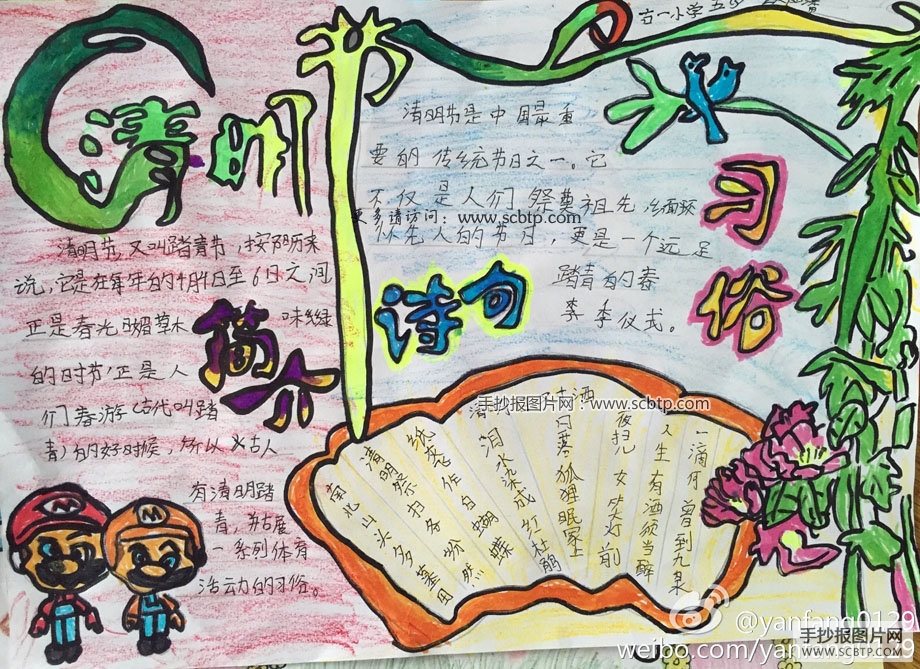 古一小学
清明
清明节,又叫踏青节,按阴历来
说,它是在每年的4月4日至6日之间
正是春光明媚草木
味绿
的时节,正是人
们春游(古代叫踏
青)的好时候,所以古人
有清明踏
青,并
一系列体育
活动的习俗。
简介
清明节是中国最重
要的传统节日之一。它
不仅是人们祭奠祖先
怀先人的节日,更是一个远足
踏青的春
季仪式。
习俗
诗句
南北山头多墓田
清明祭扫各
纸灰作白蝴蝶
泪血染成红杜鹃
狐狸眠冢上
夜
儿女笑灯前
人生有酒须当醉
一滴
曾到九泉
更多请访问:www.scbtp.com
手抄报图片网:www.scbtp.com
@yanfang0129
weibo.com/yanfang0129
手抄报图片网
WWW.SCBTP.COM
M
M